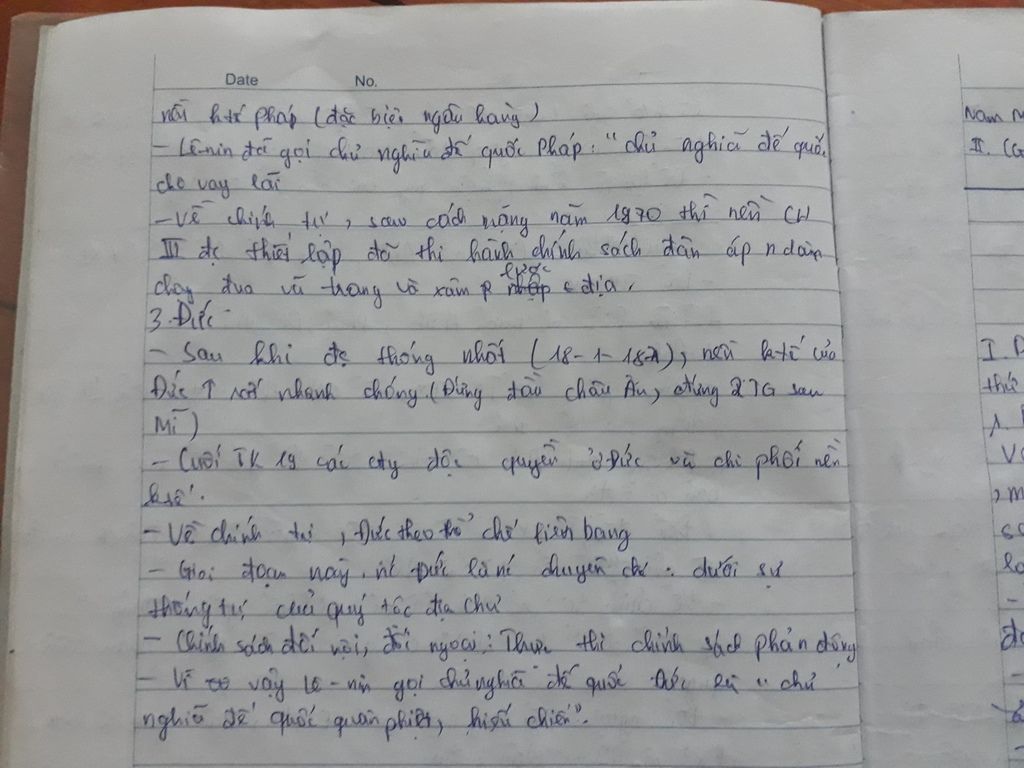 Date No.
nền ktế pháp (đặc biệt ngân hàng)
- Lê-nin đã gọi chủ nghĩa đế quốc Pháp: "chủ nghĩa đế quốc
cho vay lãi
- Về chính trị, sau cách mạng năm 1970 thì nền CH
III đc thiết lập đã thi hành chính sách đàn áp ndân
chạy đua vũ trang và xâm lược địa.
3. Đức
- Sau khi đc thống nhất (18-1-1871), nền k-tế của
Đức ↑ rất nhanh chóng (Đứng đầu châu Âu, đứng 2 TG sau
Mĩ)
- Cuối TK 19 các cty độc quyền ở Đức và chi phối nền
ktế.
- Về chính trị, Đức theo thể chế liên bang
- Giai đoạn này, nc Đức là nc chuyên chế: dưới sự
thống trị của quý tộc địa chủ
- Chính sách đối nội, đối ngoại: Thực thi chính sách phản động
- Vì vậy Lê-nin gọi chủ nghĩa đế quốc Đức là "chủ
nghĩa đế quốc quân phiệt, hiếu chiến".
Nam
II. (G
I.
thứ
1.